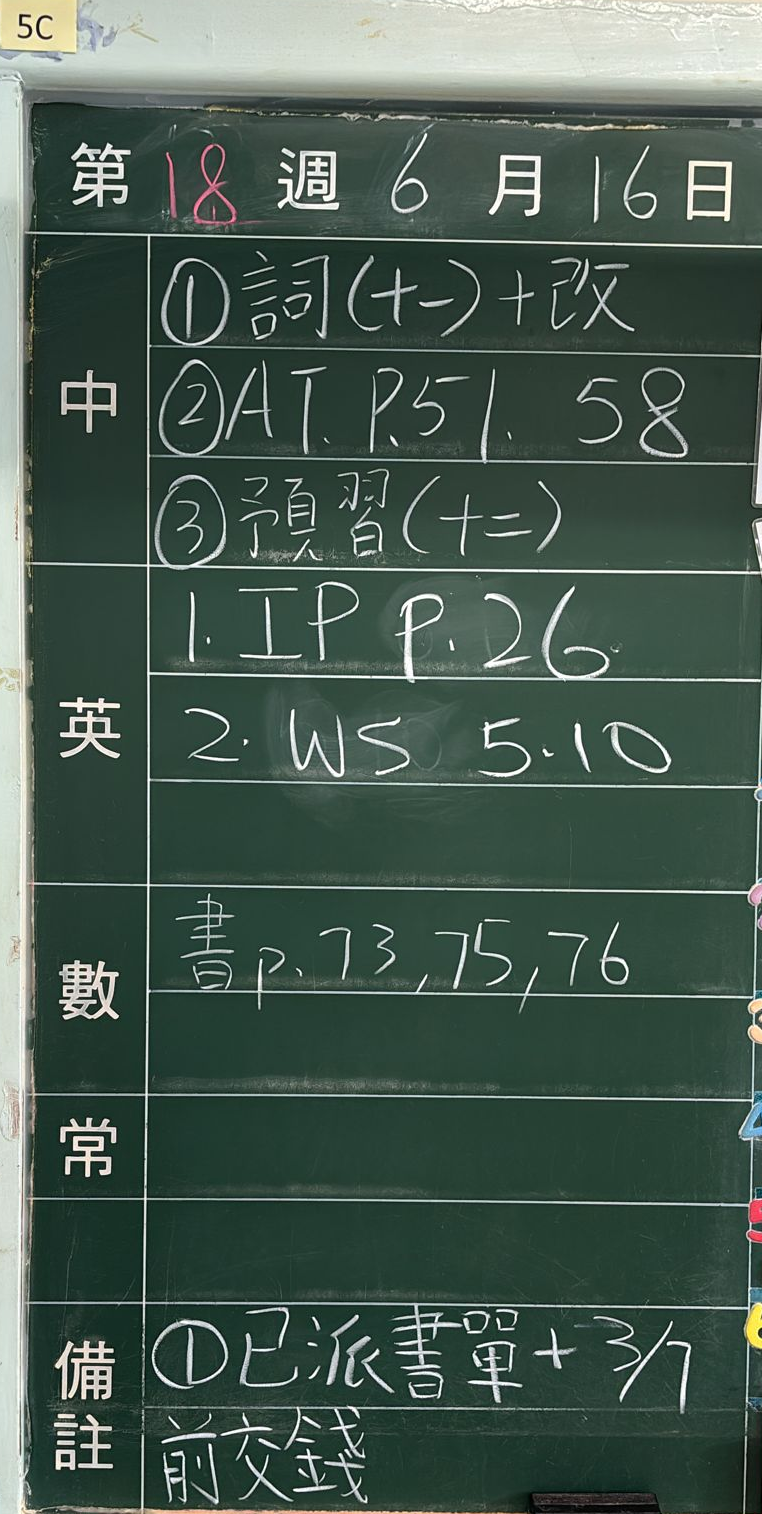 5C
第18週6月16日
中
①詞(十一)+改
②AT. P.51. 58
③預習(十二)
英
1. IP P.26
2. WS 5.10
數
書p.73,75,76
常
備註
①已派書單+3/7
前交錢